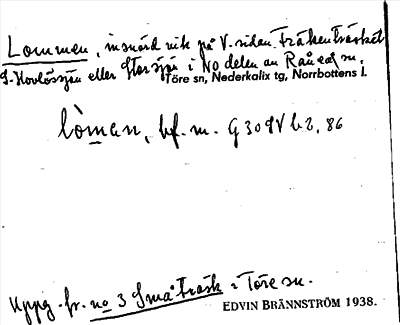 Lommen, insnärd vik på V-sidan Fräkenträsket
S. Kovlössjön eller Storsjö i NO delen av Råneå sn.
Töre sn, Nederkalix tg, Norrbottens l.
lòman, bf. m. G 309 V b 2, 86
Uppg. fr. no 3 Småträsk i Töre sn.
EDVIN BRÄNNSTRÖM 1938.